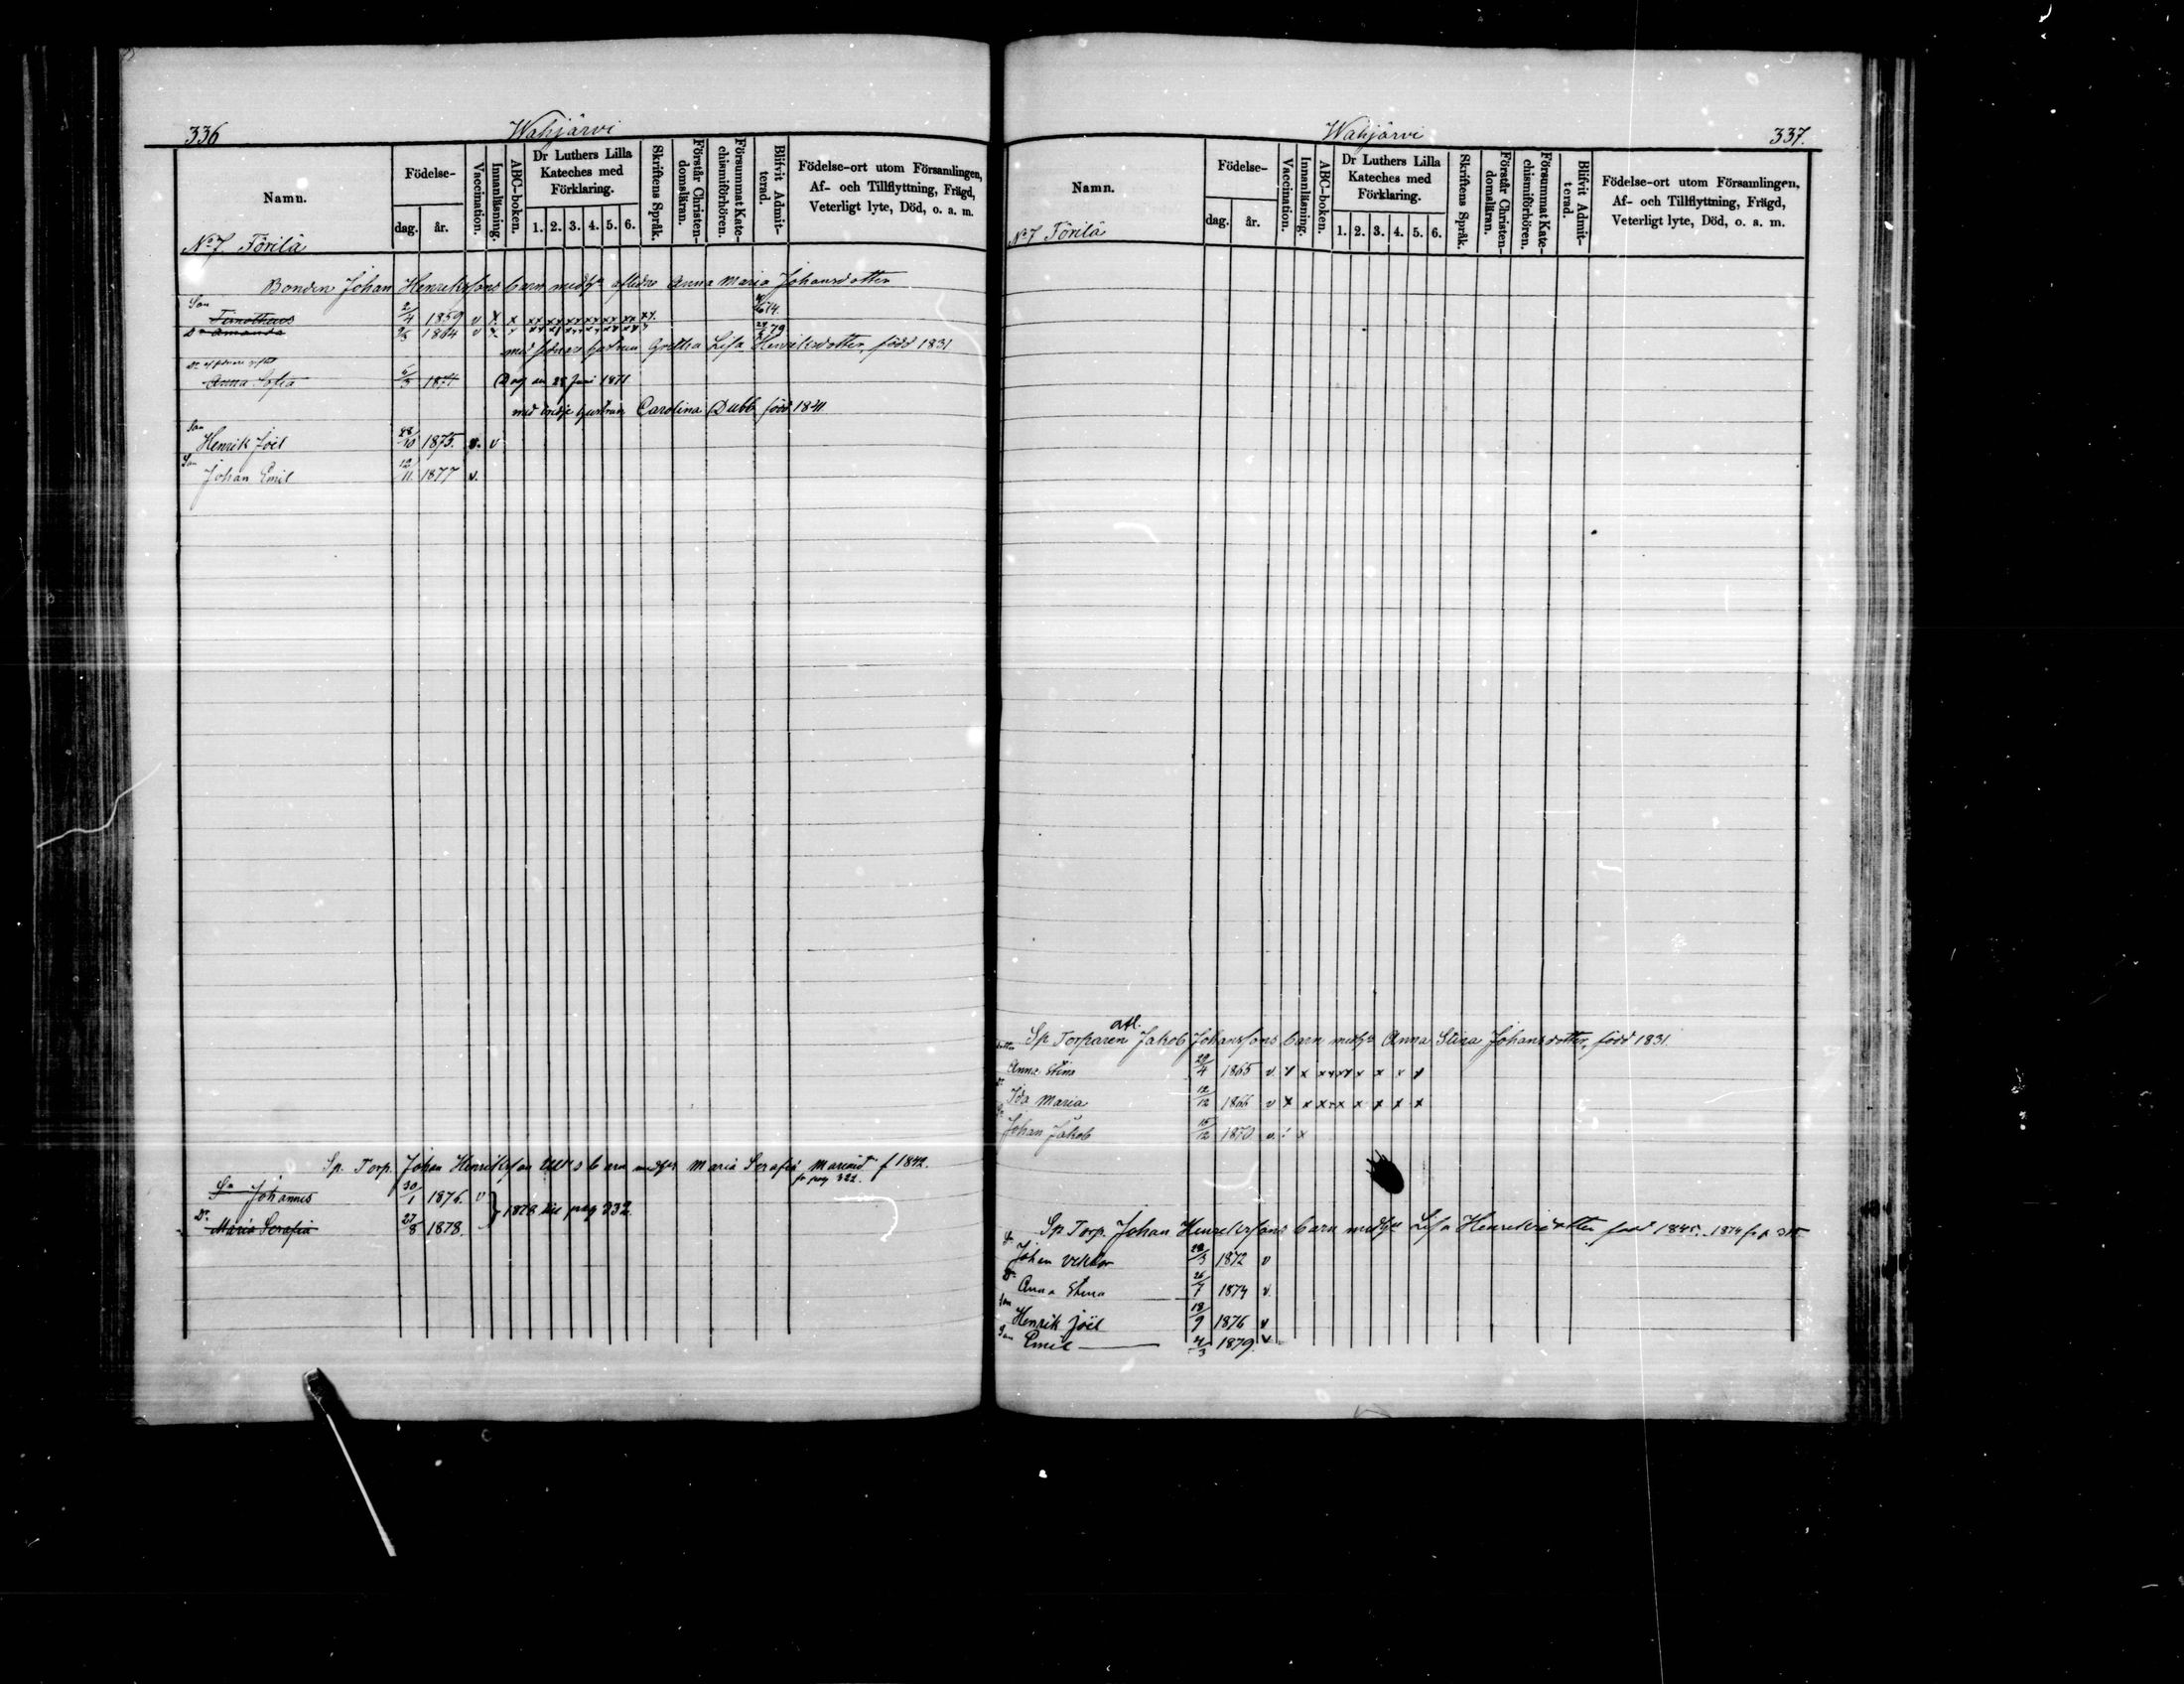 336
Wahjärvi
Namn.
Födelse-
dag.
år.
Vaccination.
Innanläsning.
ABC-boken.
Dr Luthers Lilla
Kateches med
Förklaring.
1. 2. 3. 4. 5. 6.
Skriftens Språk.
Förstår Christen-
domsläran.
Försummat Kate-
chismiförhören.
Blifvit Admit-
terad.
Födelse-ort utom Församlingen,
Af- och Tillflyttning, Frägd,
Veterligt lyte, Död, o. a. m.
No 7 Törilä
Bonden Johan Henrikssons barn med h:u aflidne Anna Maria Johansdotter
Son
Timotheus 2/4 1859 v x x xx xx xx xx xx xx xx 74.
Dr Amanda 1864 v x 79
med förra hustrun Gretha Lisa Henriksdotter, född 1831
Anna Sofia 6/5 1871 Dog den 28 Juni 1871
med tredje hustrun Carolina Dubb född 1841
Son
Henrik Joel 28/10 1875. v. v
Son
Johan Emil 12/11 1877 v.
Sp. Torp. Johan Henriksson barn med h:u Maria Serafia f 1842.
fr pag 322.
Sn Johannes 30/1 1876. v
} 1878 till pag 332
Dr Maria Serafia 27/8 1878.
Wahjärvi
337.
Namn.
Födelse-
dag.
år.
Vaccination.
Innanläsning.
ABC-boken.
Dr Luthers Lilla
Kateches med
Förklaring.
1. 2. 3. 4. 5. 6.
Skriftens Språk.
Förstår Christen-
domsläran.
Försummat Kate-
chismiförhören.
Blifvit Admit-
terad.
Födelse-ort utom Församlingen,
Af- och Tillflyttning, Frägd,
Veterligt lyte, Död, o. a. m.
No 7 Törilä
afl.
Sp Torparen Jakob Johanssons barn med h:u Anna Stina Johansdotter, född 1831.
dotter
Anna Stina 29/4 1865 v. x x xx xx x x x x
Dr
Ida Maria 12/12 1866 v x x x x x x x x x
Sn
Johan Jakob 15/12 1870 v. : x
Sp Torp. Johan Henrikssons barn med h:u Lisa Henriksdotter född 1845. 1874 fr p 315
Sn
Johan Viktor 28/3 1872 v
Dr
Anna Stina 26/7 1874 v.
Son
Henrik Joël 18/9 1876 v
Son
Emil 4/3 1879. v